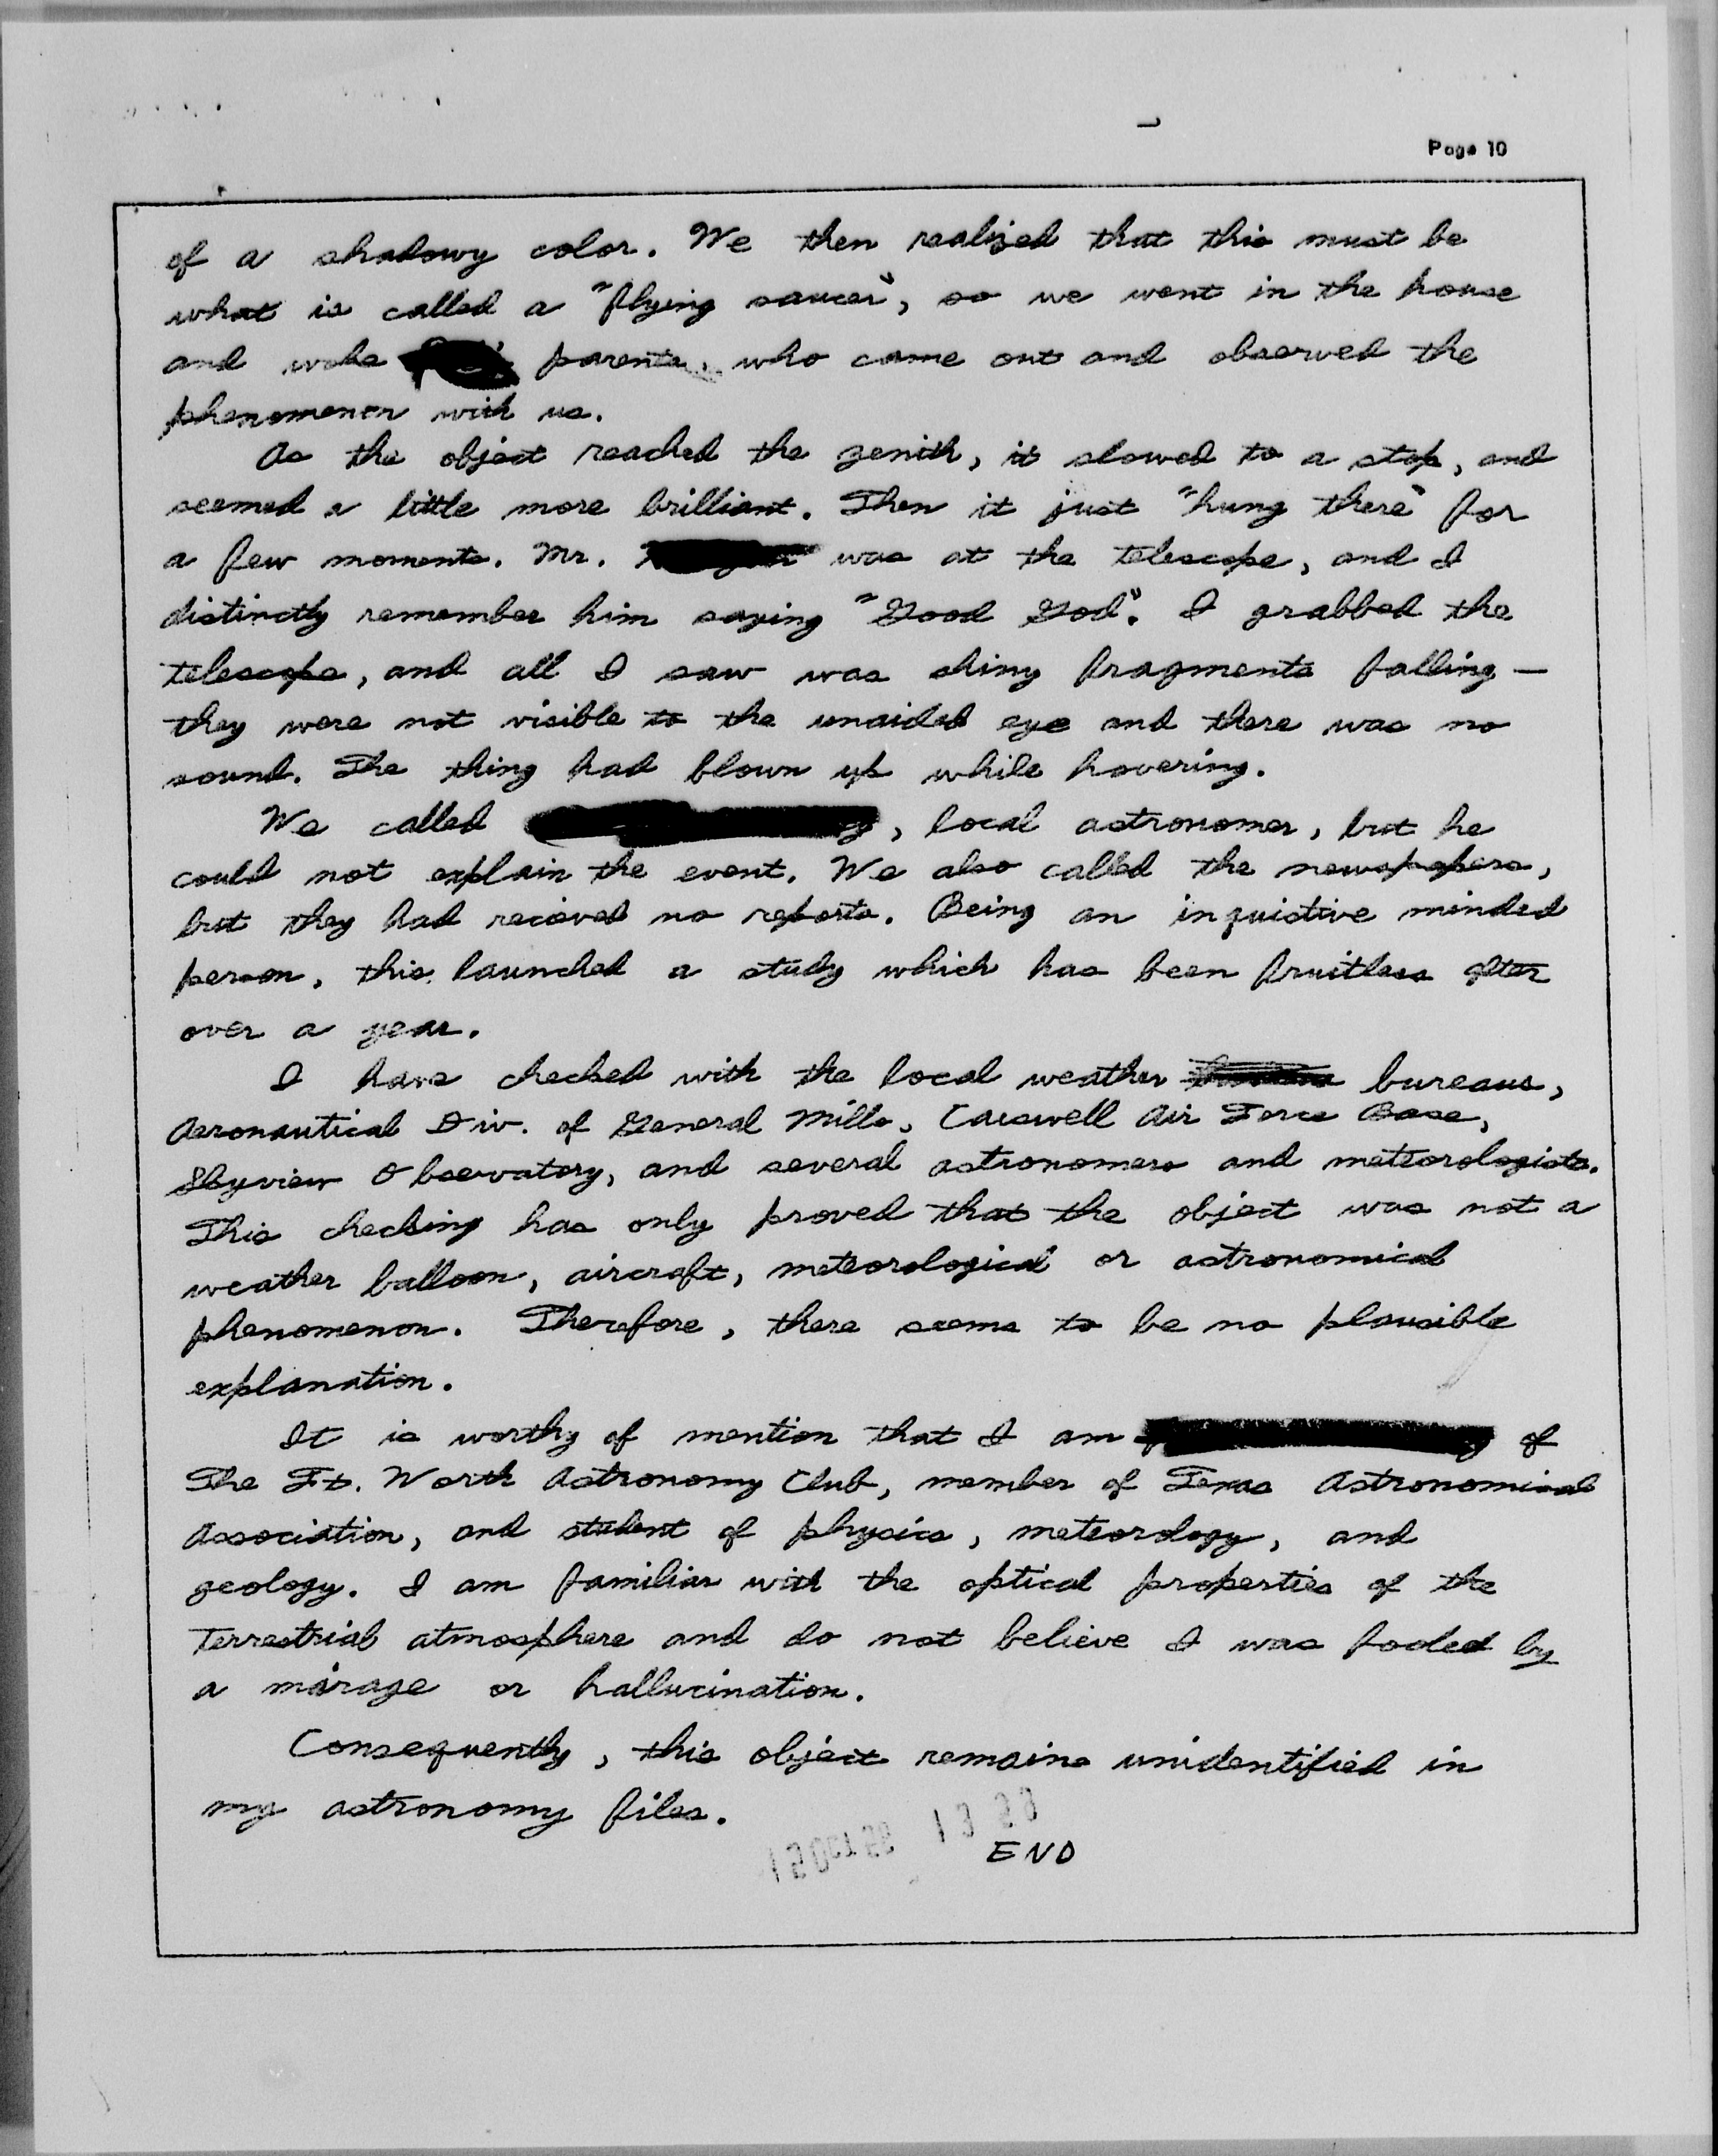 Page 10
of a shadowy color. We then realized that this must be
what is called a "flying saucer", so we went in the house
and woke parents, who came out and observed the
phenomenon with us.
As the object reached the zenith, it slowed to a stop, and
seemed a little more brilliant. Then it just "hung there" for
a few moments. Mr. was at the telescope, and I
distinctly remember him saying "Good God". I grabbed the
telescope, and all I saw was shiny fragments falling —
they were not visible to the unaided eye and there was no
sound. The thing had blown up while hovering.
We called , local astronomer, but he
could not explain the event. We also called the newspapers,
but they had recieved no reports. Being an inquistive minded
person, this launched a study which has been fruitless after
over a year.
I have checked with the local weather bureaus,
Aeronautical Div. of General Mills, Carswell Air Force Base,
Skyview Observatory, and several astronomers and meteorologists.
This checking has only proved that the object was not a
weather balloon, aircraft, meteorological or astronomical
phenomenon. Therefore, there seems to be no plausible
explanation.
It is worthy of mention that I am of
The Ft. Worth Astronomy Club, member of Texas Astronomical
Association, and student of physics, meteorology, and
geology. I am familiar with the optical properties of the
terrestrial atmosphere and do not believe I was fooled by
a mirage or hallucination.
Consequently, this object remains unidentified in
my astronomy files.
END